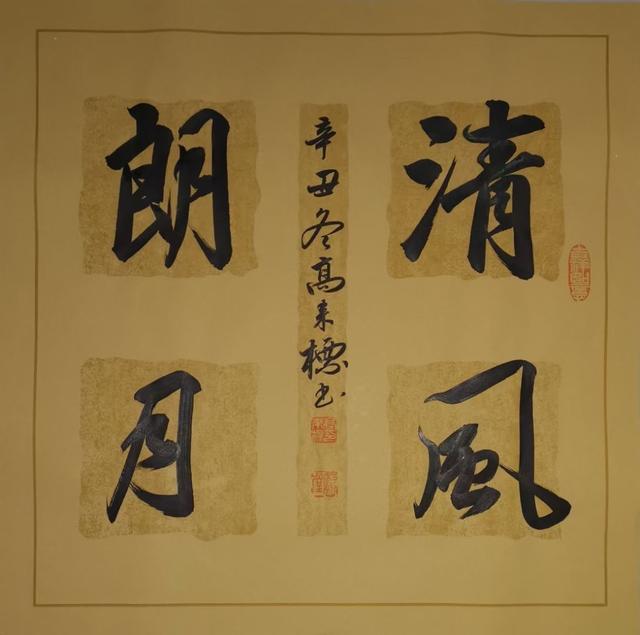 清风
朗月
辛丑冬高来標书